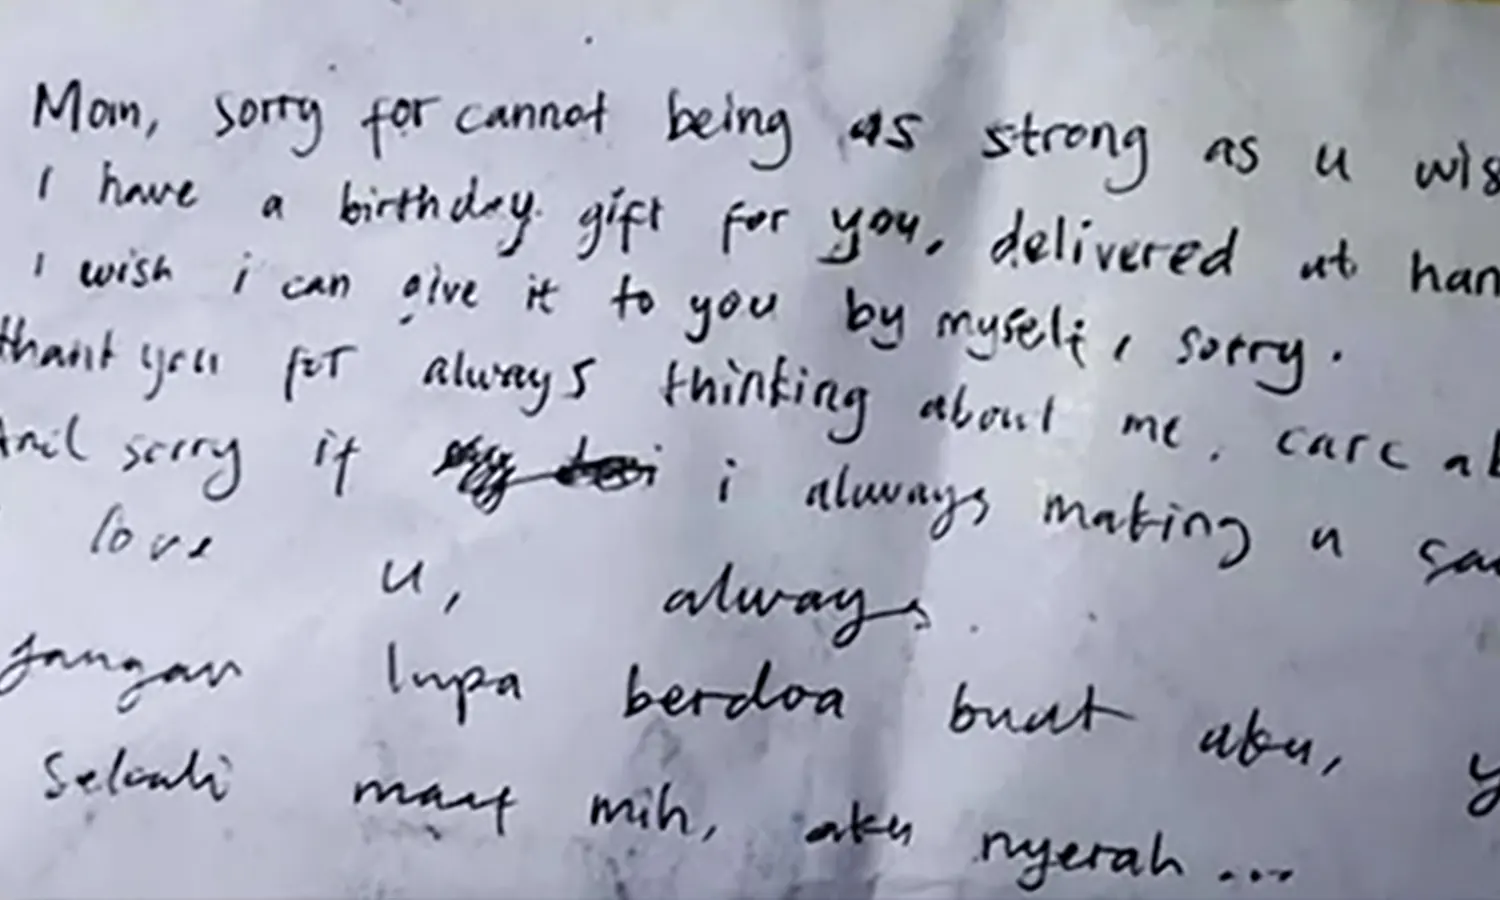 Mom, sorry for cannot being as strong as u wis
I have a birthday gift for you, delivered at han
I wish i can give it to you by myself, sorry.
thank you for always thinking about me, care ab
And sorry if i always making u sad
love u, always.
jangan lupa berdoa buat aku, y
Sekali maaf mih, aku nyerah ...